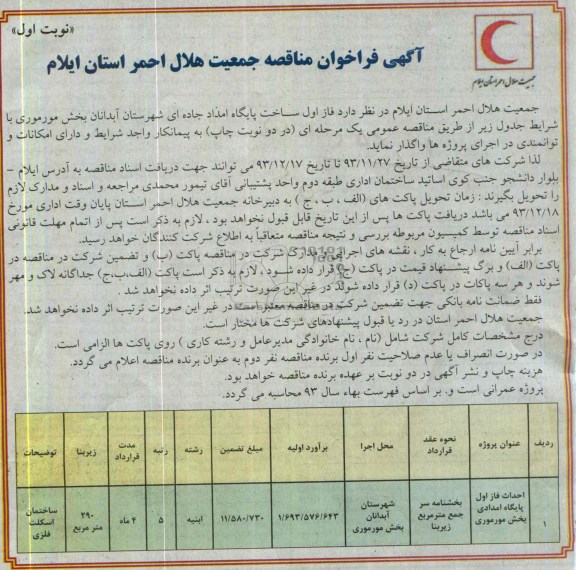 «نوبت اول»
آگهی فراخوان مناقصه جمعیت هلال احمر استان ایلام
جمعیت هلال احمر استان ایلام
جمعیت هلال احمر استان ایلام در نظر دارد فاز اول ساخت پایگاه امداد جاده ای شهرستان آبدانان بخش مورموری با
شرایط جدول زیر از طریق مناقصه عمومی یک مرحله ای (در دو نوبت چاپ) به پیمانکار واجد شرایط و دارای امکانات و
توانمندی در اجرای پروژه ها واگذار نماید.
لذا شرکت های متقاضی از تاریخ ۹۳/۱۱/۲۷ تا تاریخ ۹۳/۱۲/۱۷ می توانند جهت دریافت اسناد مناقصه به آدرس ایلام –
بلوار دانشجو جنب کوی اساتید ساختمان اداری طبقه دوم واحد پشتیبانی آقای تیمور محمدی مراجعه و اسناد و مدارک لازم
را تحویل بگیرند : زمان تحویل پاکت های (الف ، ب ، ج ) به دبیرخانه جمعیت هلال احمر استان پایان وقت اداری مورخ
۹۳/۱۲/۱۸ می باشد دریافت پاکت ها پس از این تاریخ قابل قبول نخواهد بود ، لازم به ذکر است پس از اتمام مهلت قانونی
اسناد مناقصه توسط کمیسیون مربوطه بررسی و نتیجه مناقصه متعاقباً به اطلاع شرکت کنندگان خواهد رسید.
برابر آیین نامه ارجاع به کار ، نقشه های اجرایی مدارک شرکت در مناقصه پاکت (ب) و تضمین شرکت در مناقصه در
پاکت (الف) و برگ پیشنهاد قیمت در پاکت (ج) قرار داده شود ، لازم به ذکر است پاکت (الف،ب،ج) جداگانه لاک و مهر
شوند و هر سه پاکات در پاکت (د) قرار داده شوند در غیر این صورت ترتیب اثر داده نخواهد شد .
فقط ضمانت نامه بانکی جهت تضمین شرکت در مناقصه معتبر است در غیر این صورت ترتیب اثر داده نخواهد شد.
جمعیت هلال احمر استان در رد یا قبول پیشنهادهای شرکت ها مختار است.
درج مشخصات کامل شرکت شامل (نام ، نام خانوادگی مدیرعامل و رشته کاری ) روی پاکت ها الزامی است.
در صورت انصراف یا عدم صلاحیت نفر اول برنده مناقصه نفر دوم به عنوان برنده مناقصه اعلام می گردد.
هزینه چاپ و نشر آگهی در دو نوبت بر عهده برنده مناقصه خواهد بود.
پروژه عمرانی است و. بر اساس فهرست بهاء سال ۹۳ محاسبه می گردد.
ردیف عنوان پروژه نحوه عقد قرارداد محل اجرا برآورد اولیه مبلغ تضمین رشته رتبه مدت قرارداد زیربنا توضیحات
۱ احداث فاز اول پایگاه امدادی بخش مورموری بخشنامه سر جمع مترمربع زیربنا شهرستان آبدانان بخش مورموری ۱/۶۹۳/۵۷۶/۶۴۳ ۱۱/۵۸۰/۷۳۰ ابنیه ۵ ۴ ماه ۲۹۰ متر مربع ساختمان اسکلت فلزی